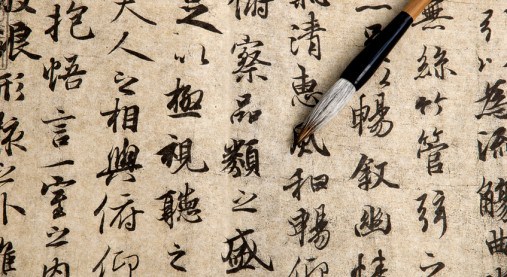 引以為流觴曲
無絲竹管弦之
足以暢叙幽情
氣清惠風和暢仰
俯察品類之盛
足以極視聽之
夫人之相與俯仰
抱悟言一室之内
放浪形骸之外雖